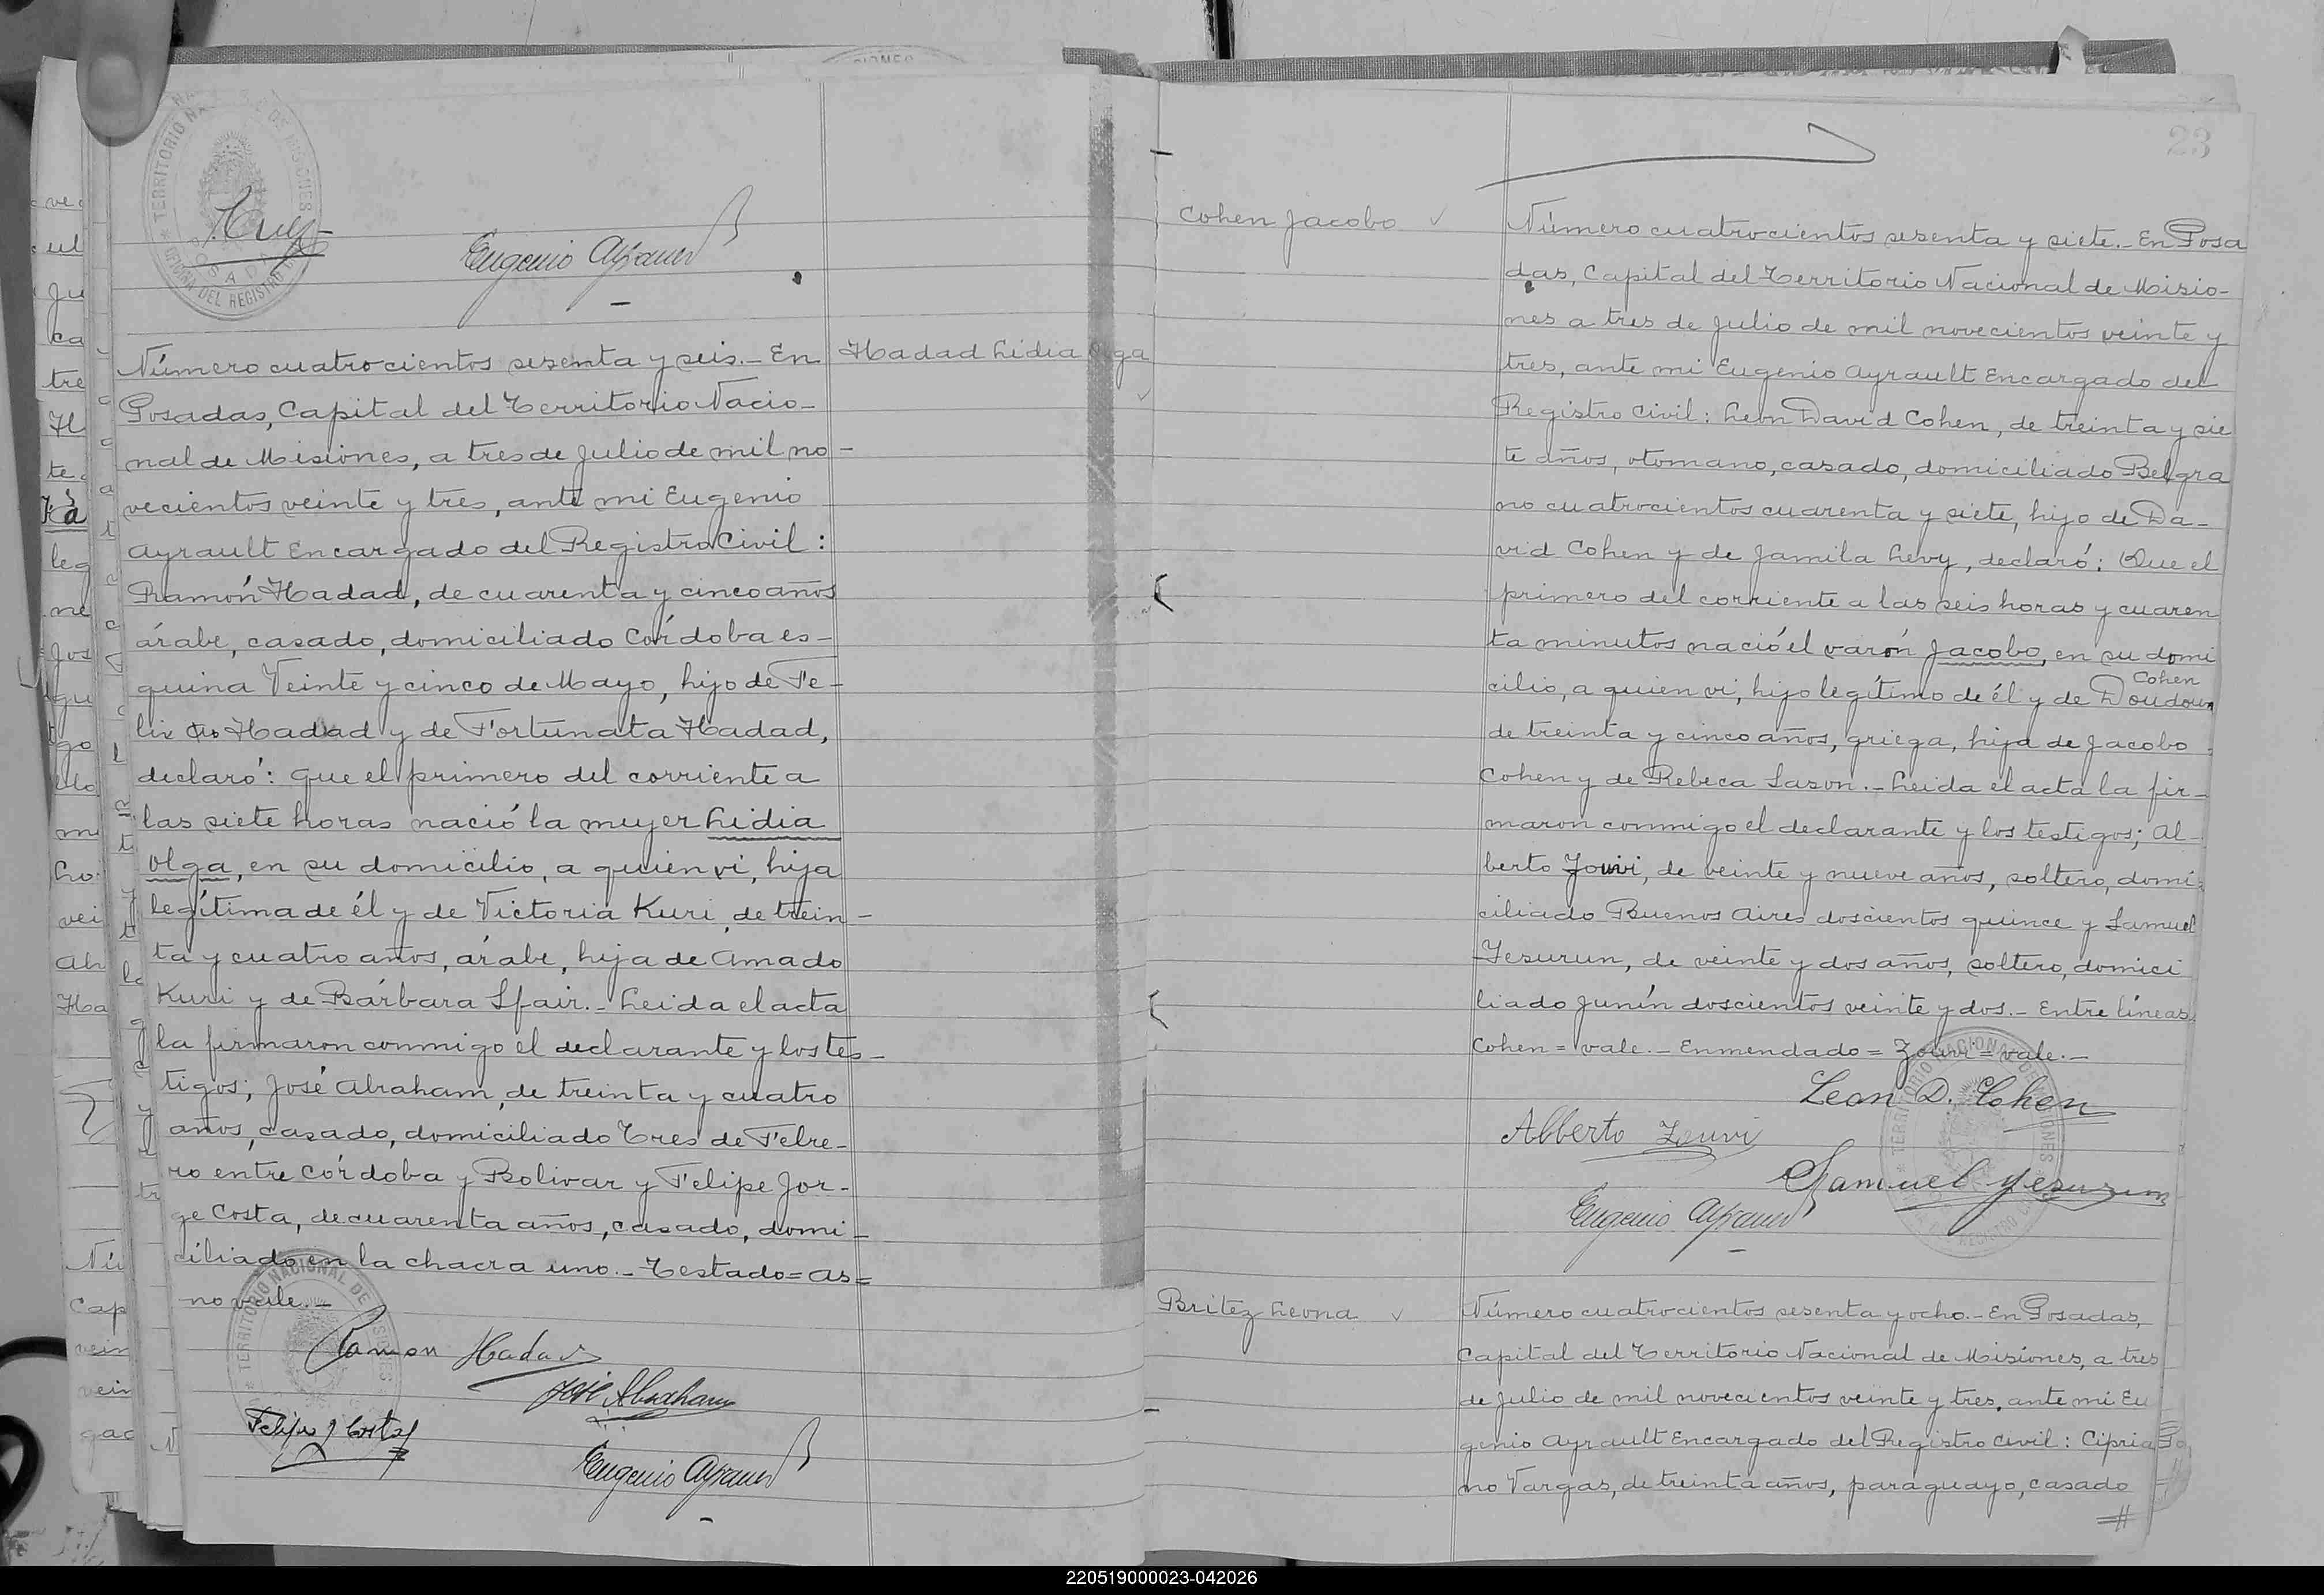 Eugenio Ayrault
Número cuatrocientos sesenta y seis.- En
Hadad Lidia Olga
Posadas, Capital del Territorio Nacio-
nal de Misiones, a tres de Julio de mil no-
vecientos veinte y tres, ante mi Eugenio
Ayrault Encargado del Registro Civil:
Ramón Hadad, de cuarenta y cinco años
árabe, casado, domiciliado Córdoba es-
quina Veinte y cinco de Mayo, hijo de Fe-
lix As Hadad y de Fortunata Hadad,
declaró: que el primero del corriente a
las siete horas nació la mujer Lidia
Olga, en su domicilio, a quien vi, hija
legítima de él y de Victoria Kuri, de trein-
ta y cuatro años, árabe, hija de Amado
Kuri y de Bárbara Sfair.- Leida el acta
la firmaron conmigo el declarante y los tes-
tigos; José Abraham, de treinta y cuatro
años, casado, domiciliado Tres de Febre-
ro entre Córdoba y Bolivar y Felipe Jor-
ge Costa, de cuarenta años, casado, domi-
ciliado en la chacra uno.- Testado=As=
no vale.-
Ramon Hadad
José Abraham
Felipe J Costa
Eugenio Ayrault
23
Cohen Jacobo
Número cuatrocientos sesenta y siete.- En Posa
das, Capital del Territorio Nacional de Misio-
nes a tres de Julio de mil novecientos veinte y
tres, ante mi Eugenio Ayrault Encargado del
Registro Civil: León David Cohen, de treinta y sie
te años, otomano, casado, domiciliado Belgra
no cuatrocientos cuarenta y siete, hijo de Da-
vid Cohen y de Jamila Levy, declaró: Que el
primero del corriente a las seis horas y cuaren
ta minutos nació el varón Jacobo, en su domi
Cohen
cilio, a quien vi, hijo legítimo de él y de Doudoun
de treinta y cinco años, griega, hija de Jacobo
Cohen y de Rebeca Sason.- Leida el acta la fir-
maron conmigo el declarante y los testigos; Al-
berto Zouvi, de veinte y nueve años, soltero, domi-
ciliado Buenos Aires doscientos quince y Samuel
Yesurun, de veinte y dos años, soltero, domici
liado Junín doscientos veinte y dos.- Entre líneas
Cohen=vale.- Enmendado=Zouvi=vale.-
Leon D. Cohen
Alberto Zouvi
Samuel Yesurun
Eugenio Ayrault
Britez Leona
Número cuatrocientos sesenta y ocho.- En Posadas,
Capital del Territorio Nacional de Misiones, a tres
de Julio de mil novecientos veinte y tres, ante mi Eu
genio Ayrault Encargado del Registro Civil: Cipria
no Vargas, de treinta años, paraguayo, casado
220519000023-042026